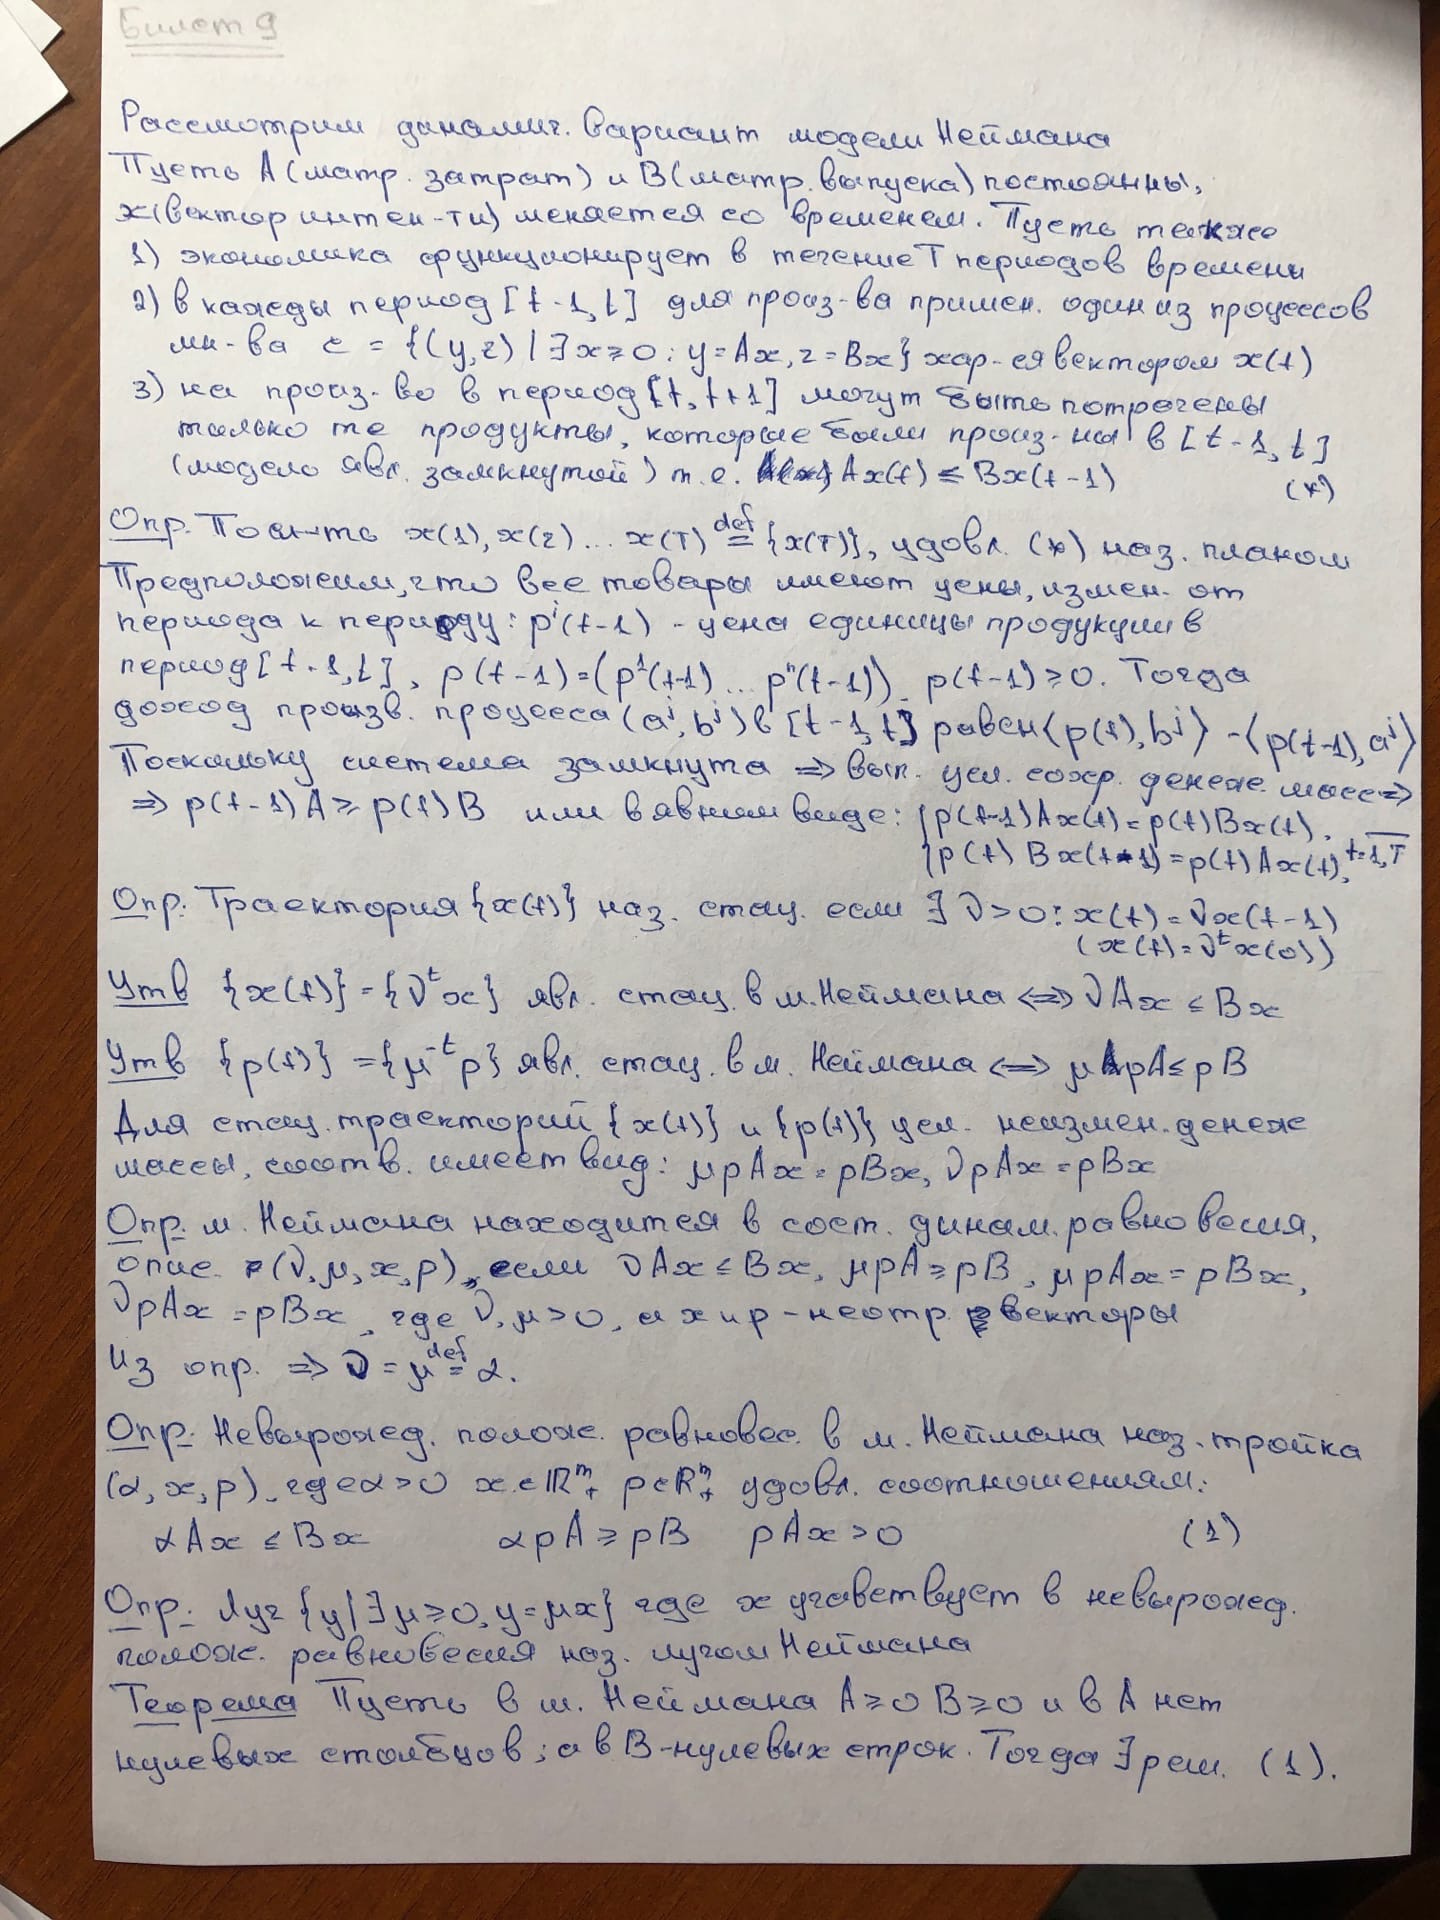 Билет 9
Рассмотрим динамич. вариант модели Неймана
Пусть A (матр. затрат) и B (матр. выпуска) постоянны,
x (вектор интен-ти) меняется со временем. Пусть также
1) экономика функционирует в течение T периодов времени
2) в кажды период [t-1, t] для произ-ва примен. один из процессов
мн-ва c = {(y,z) | ∃x≥0 : y=Ax, z=Bx} хар-ся вектором x(t)
3) на произ-во в период [t, t+1] могут быть потрачены
только те продукты, которые были произ-ны в [t-1, t]
(модель явл. замкнутой) т.е. Ax(t) ≤ Bx(t-1) (*)
Опр. Посл-ть x(1), x(2) ... x(T) def= {x(T)}, удовл. (*) наз. планом
Предположим, что все товары имеют цены, измен. от
периода к периоду: pⁱ(t-1) - цена единицы продукции в
период [t-1, t], p(t-1) = (p¹(t-1) ... pⁿ(t-1)). p(t-1) ≥ 0. Тогда
доход произв. процесса (aʲ, bʲ) в [t-1, t] равен ⟨p(t), bʲ⟩ - ⟨p(t-1), aʲ⟩
Поскольку система замкнута ⇒ вып. усл. сохр. денеж. масс ⇒
⇒ p(t-1)A ≥ p(t)B или в явном виде: {p(t-1)Ax(t) = p(t)Bx(t),
{p(t)Bx(t-1) = p(t)Ax(t), t=1,T
Опр. Траектория {x(t)} наз. стац. если ∃ν>0 : x(t) = νx(t-1)
(x(t) = νᵗx(0))
Утв {x(t)} = {νᵗx} явл. стац. в м. Неймана ⟺ νAx ≤ Bx
Утв {p(t)} = {μ⁻ᵗp} явл. стац. в м. Неймана ⟺ μpA ≤ pB
Для стац. траекторий {x(t)} и {p(t)} усл. неизмен. денеж
массы, соотв. имеет вид: μpAx = pBx, νpAx = pBx
Опр. м. Неймана находится в сост. динам. равновесия,
опис. (ν, μ, x, p), если νAx ≤ Bx, μpA ≥ pB, μpAx = pBx,
νpAx = pBx, где ν, μ > 0, а x и p - неотр. векторы
Из опр. ⇒ ν = μ def= α.
Опр. Невырожд. полож. равновес. в м. Неймана наз. тройка
(α, x, p), где α>0 x∈ℝᵐ₊ p∈ℝⁿ₊ удовл. соотношениям:
αAx ≤ Bx αpA ≥ pB pAx > 0 (1)
Опр. Луч {y | ∃μ≥0, y=μx} где x учавствует в невырожд.
полож. равновесия наз. лучом Неймана
Теорема Пусть в м. Неймана A≥0 B≥0 и в A нет
нулевых столбцов; а в B - нулевых строк. Тогда ∃ реш. (1).